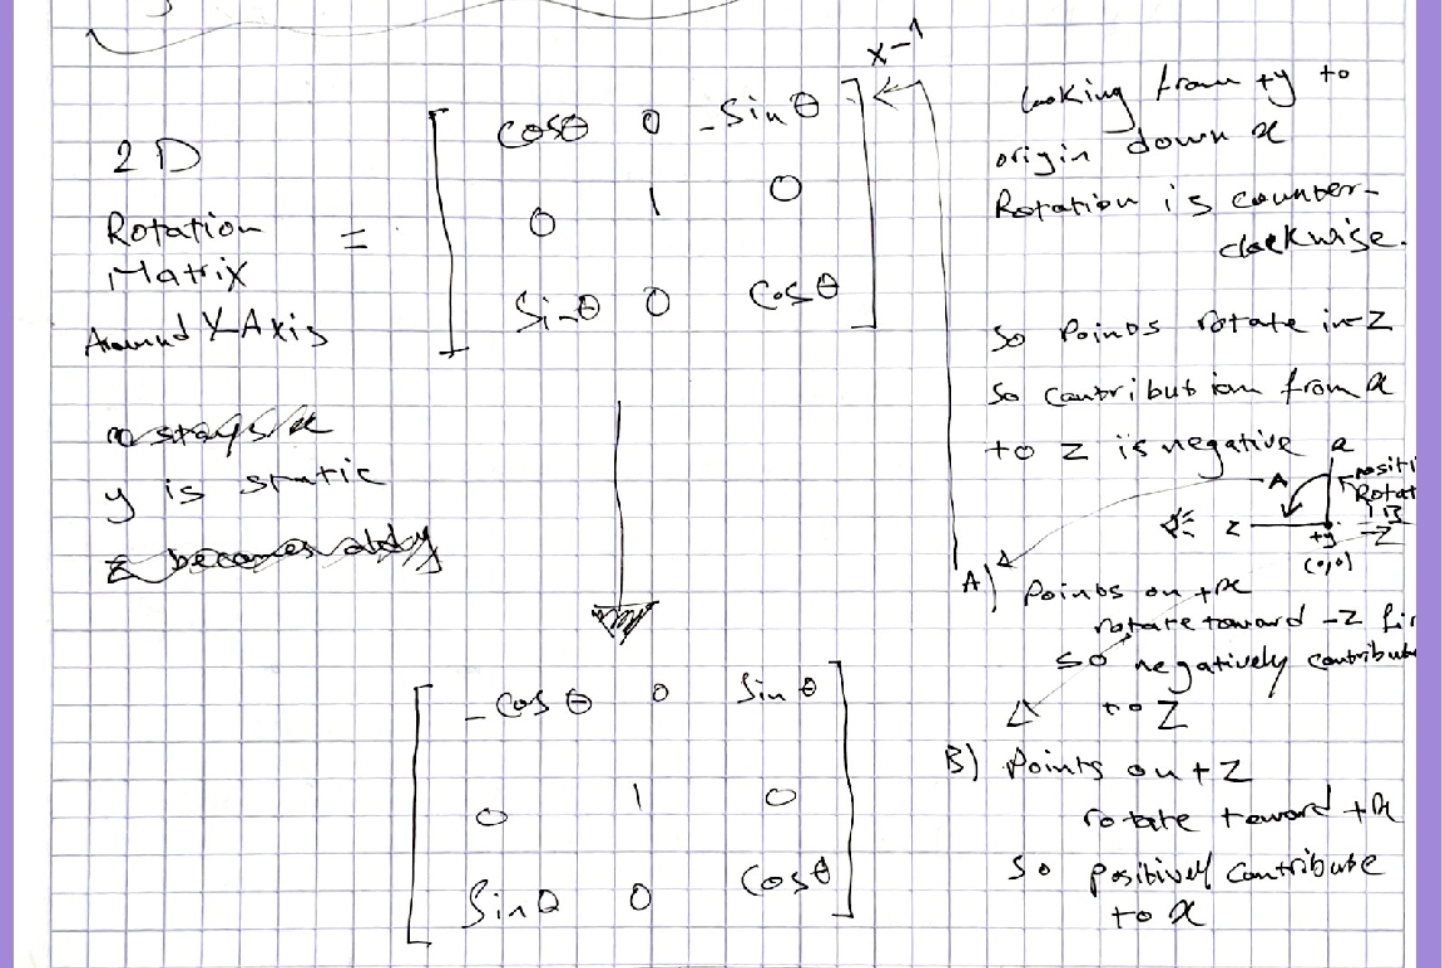 x-1
2D
Rotation
Matrix
Around Y-Axis
=
cosθ 0 -sinθ
0 1 0
Sinθ 0 Cosθ
y is static
-Cosθ 0 Sinθ
0 1 0
Sinθ 0 Cosθ
Looking from +y to
origin down x
Rotation is counter-
clockwise.
So Points rotate in -Z
So contribution from x
to Z is negative
A
positi
Rotat
Z
+y
-Z
(0,0)
A) Points on +x
rotate toward -Z fir
so negatively contribute
to Z
B) Points on +Z
rotate toward +x
So positively contribute
to x